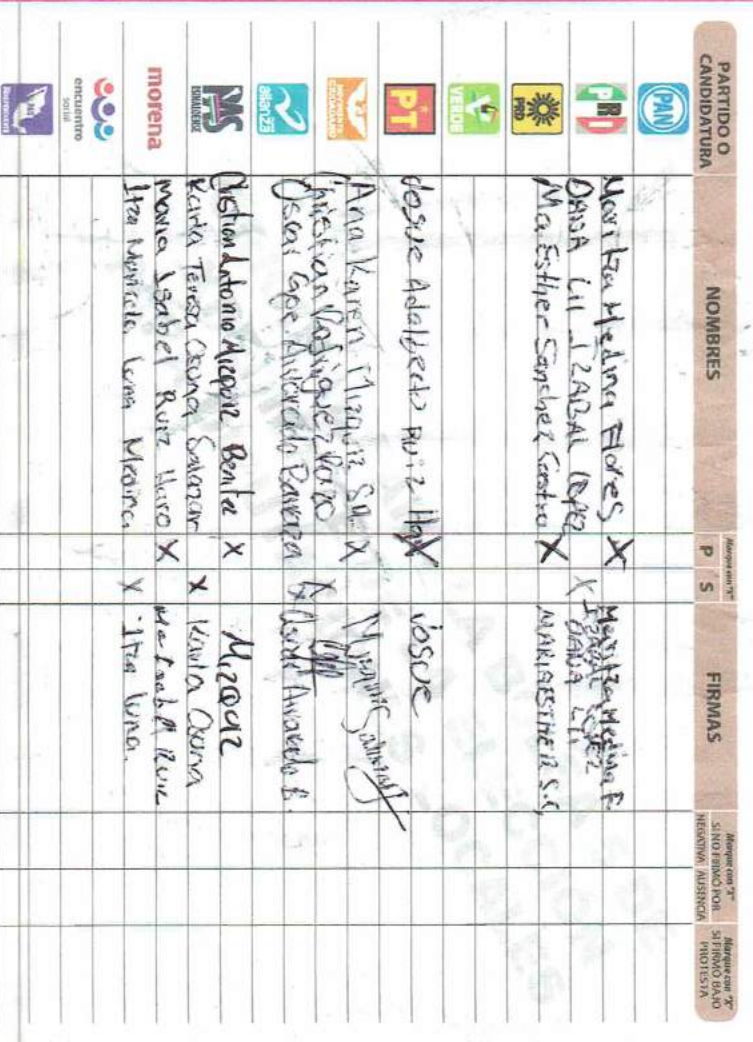 PARTIDO O CANDIDATURA
NOMBRES
Marque con "X"
P
S
FIRMAS
Marque con "X"
SI NO FIRMÓ POR
NEGATIVA
AUSENCIA
Marque con "X"
SI FIRMÓ BAJO
PROTESTA
PAN
PRI
Maritza Medina Flores X Maritza Medina F.
DANA LILI IZABAL LOPEZ X IZABAL LOPEZ
DANA LILI
PRD
Ma. Esther Sanchez Castro X MARIAESTHER S.C,
VERDE
PT
Josue Adalberto Ruiz X Josue
MOVIMIENTO CIUDADANO
Ana Karen Mizquiz X
Christian Rodriguez
alianza
Oscar Gpe. Alvarado Alvarado B.
PAS
SINALOENSE
Antonio Mizquiz X Mizquiz
Karla Teresa Osuna Salazar X Karla Osuna
morena
Maria Isabel Ruiz Haro X Ma Isabel Ruiz
Itza Luna Medina X Itza Luna.
encuentro
social